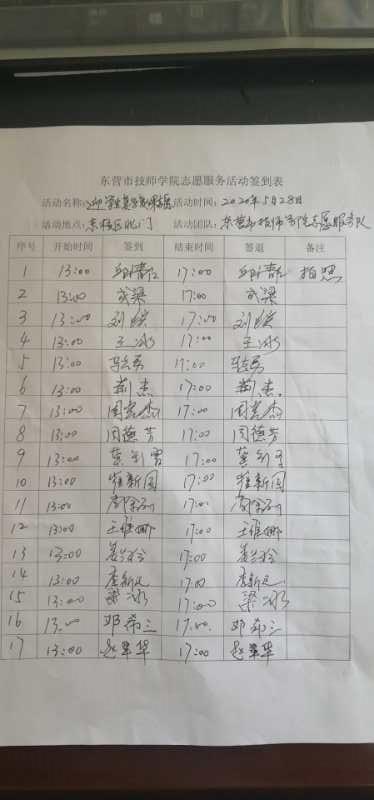 东营市技师学院志愿服务活动签到表
活动名称: 活动时间: 2020年5月28日
活动地点: 东校区北门 活动团队: 东营市技师学院志愿服务队
序号 开始时间 签到 结束时间 签退 备注
1 13:00 17:00 拍照
2 13:00 成梁 17:00 成梁
3 13:00 刘 17:00 刘
4 13:00 王冰 17:00 王冰
5 13:00 17:00
6 13:00 荆杰 17:00 荆杰
7 13:00 周宪杰 17:00 周宪杰
8 13:00 闫德芳 17:00 闫德芳
9 13:00 17:00
10 13:00 崔新国 17:00 崔新国
11 13:00 17:00
12 13:00 王维娜 17:00 王维娜
13 13:00 姜 17:00 姜
14 13:00 17:00
15 13:00 梁冰 17:00 梁冰
16 13:00 邓希三 17:00 邓希三
17 13:00 赵翠华 17:00 赵翠华